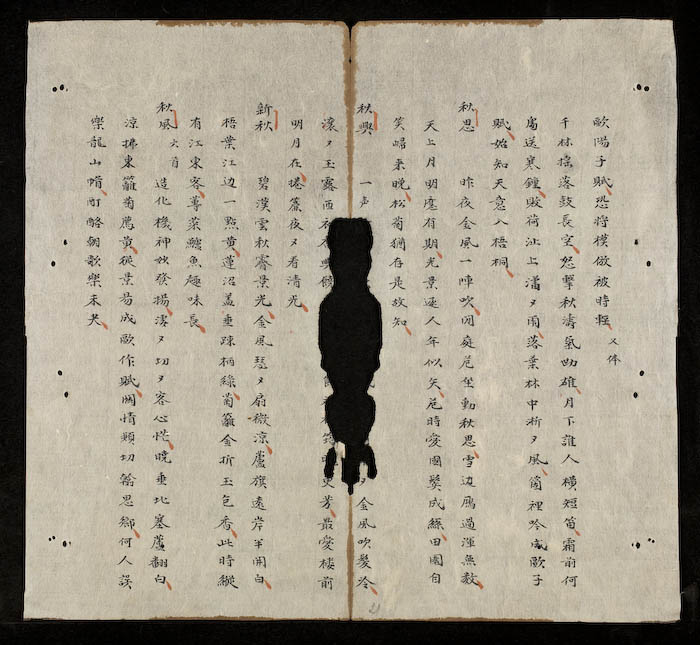 歐陽子賦恐將模倣被時輕 又体
千林搖落鼓長空怒擊秋濤氣勢雄月下誰人橫短笛霜前何
處送寒鐘敗荷沚上瀟々雨落葉林中淅々風箇裡吟成歐子
賦始知天意入梧桐
秋思 昨夜金風一陣吹閑庭危坐動秋思雪边鴈過渾無数
天上月明應有期光景逐人年似矢危時愛國鬓成絲田園自
笑歸来晚松菊猶存是故知
秋興 一声 金風吹髪冷
瀼々玉露西 更芳最愛楼前
明月在捲簾夜々看清光
新秋 碧漢雲秋霽景光金風瑟々扇微凉蘆旗遠岸半開白
梧葉江边一點黄蓮沼盖垂踈柄綠菊籬金折玉包香此時縱
有江東客蓴菜鱸魚趣味長
秋風 六首 造化機神妙發揚凄々切々客心慌曉垂北塞蘆翻白
凉拂東籬菊薦黄從景易成歐作賦関情類切翁思鄉何人誤
樂龍山帽酊酪朝歌樂未央